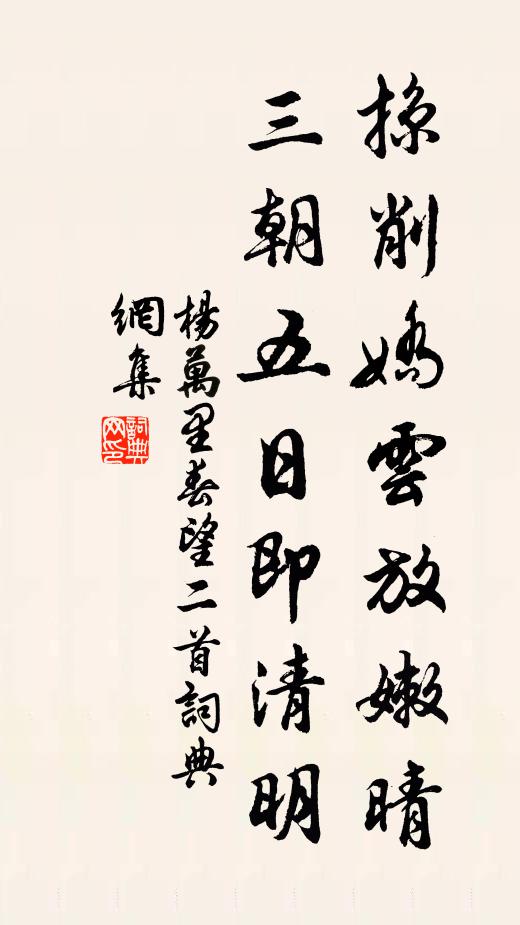 掠削嬌雲放嫩晴
三朝五日即清明
楊萬里春望二首詞典
網集
詞典
网印